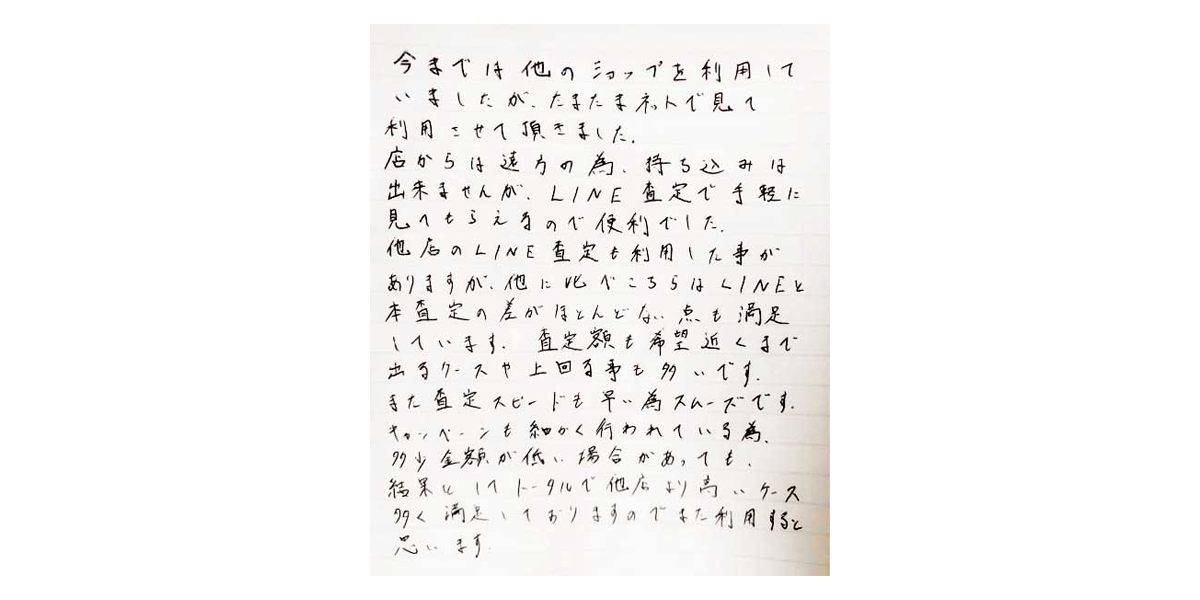 今までは他のショップを利用して
いましたが、たまたまネットで見て
利用させて頂きました。
店からは遠方の為、持ち込みは
出来ませんが、LINE査定で手軽に
見てもらえるので便利でした。
他店のLINE査定も利用した事が
ありますが、他に比べこちらはLINEと
本査定の差がほとんどない点も満足
しています。査定額も希望近くまで
出るケースや上回る事も多いです。
また査定スピードも早い為スムーズです。
キャンペーンも細かく行われている為、
多少金額が低い場合があっても、
結果としてトータルで他店より高いケース
多く満足しておりますのでまた利用すると
思います。